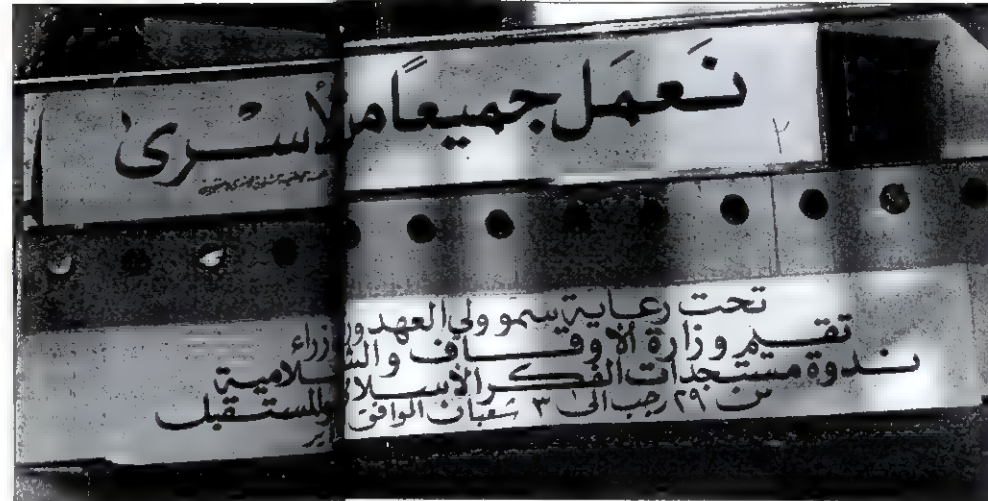 نَعمَل جميعًا من الأسْرى
تحت رعاية سمو ولي العهد ور
زراء
تقيم وزارة الاوقاف والش
لامية
ندوة مستجدات الفكر الاسلا
والمستقبل
من ٢٩ رجب الى ٣ شعبان الموافق
ير